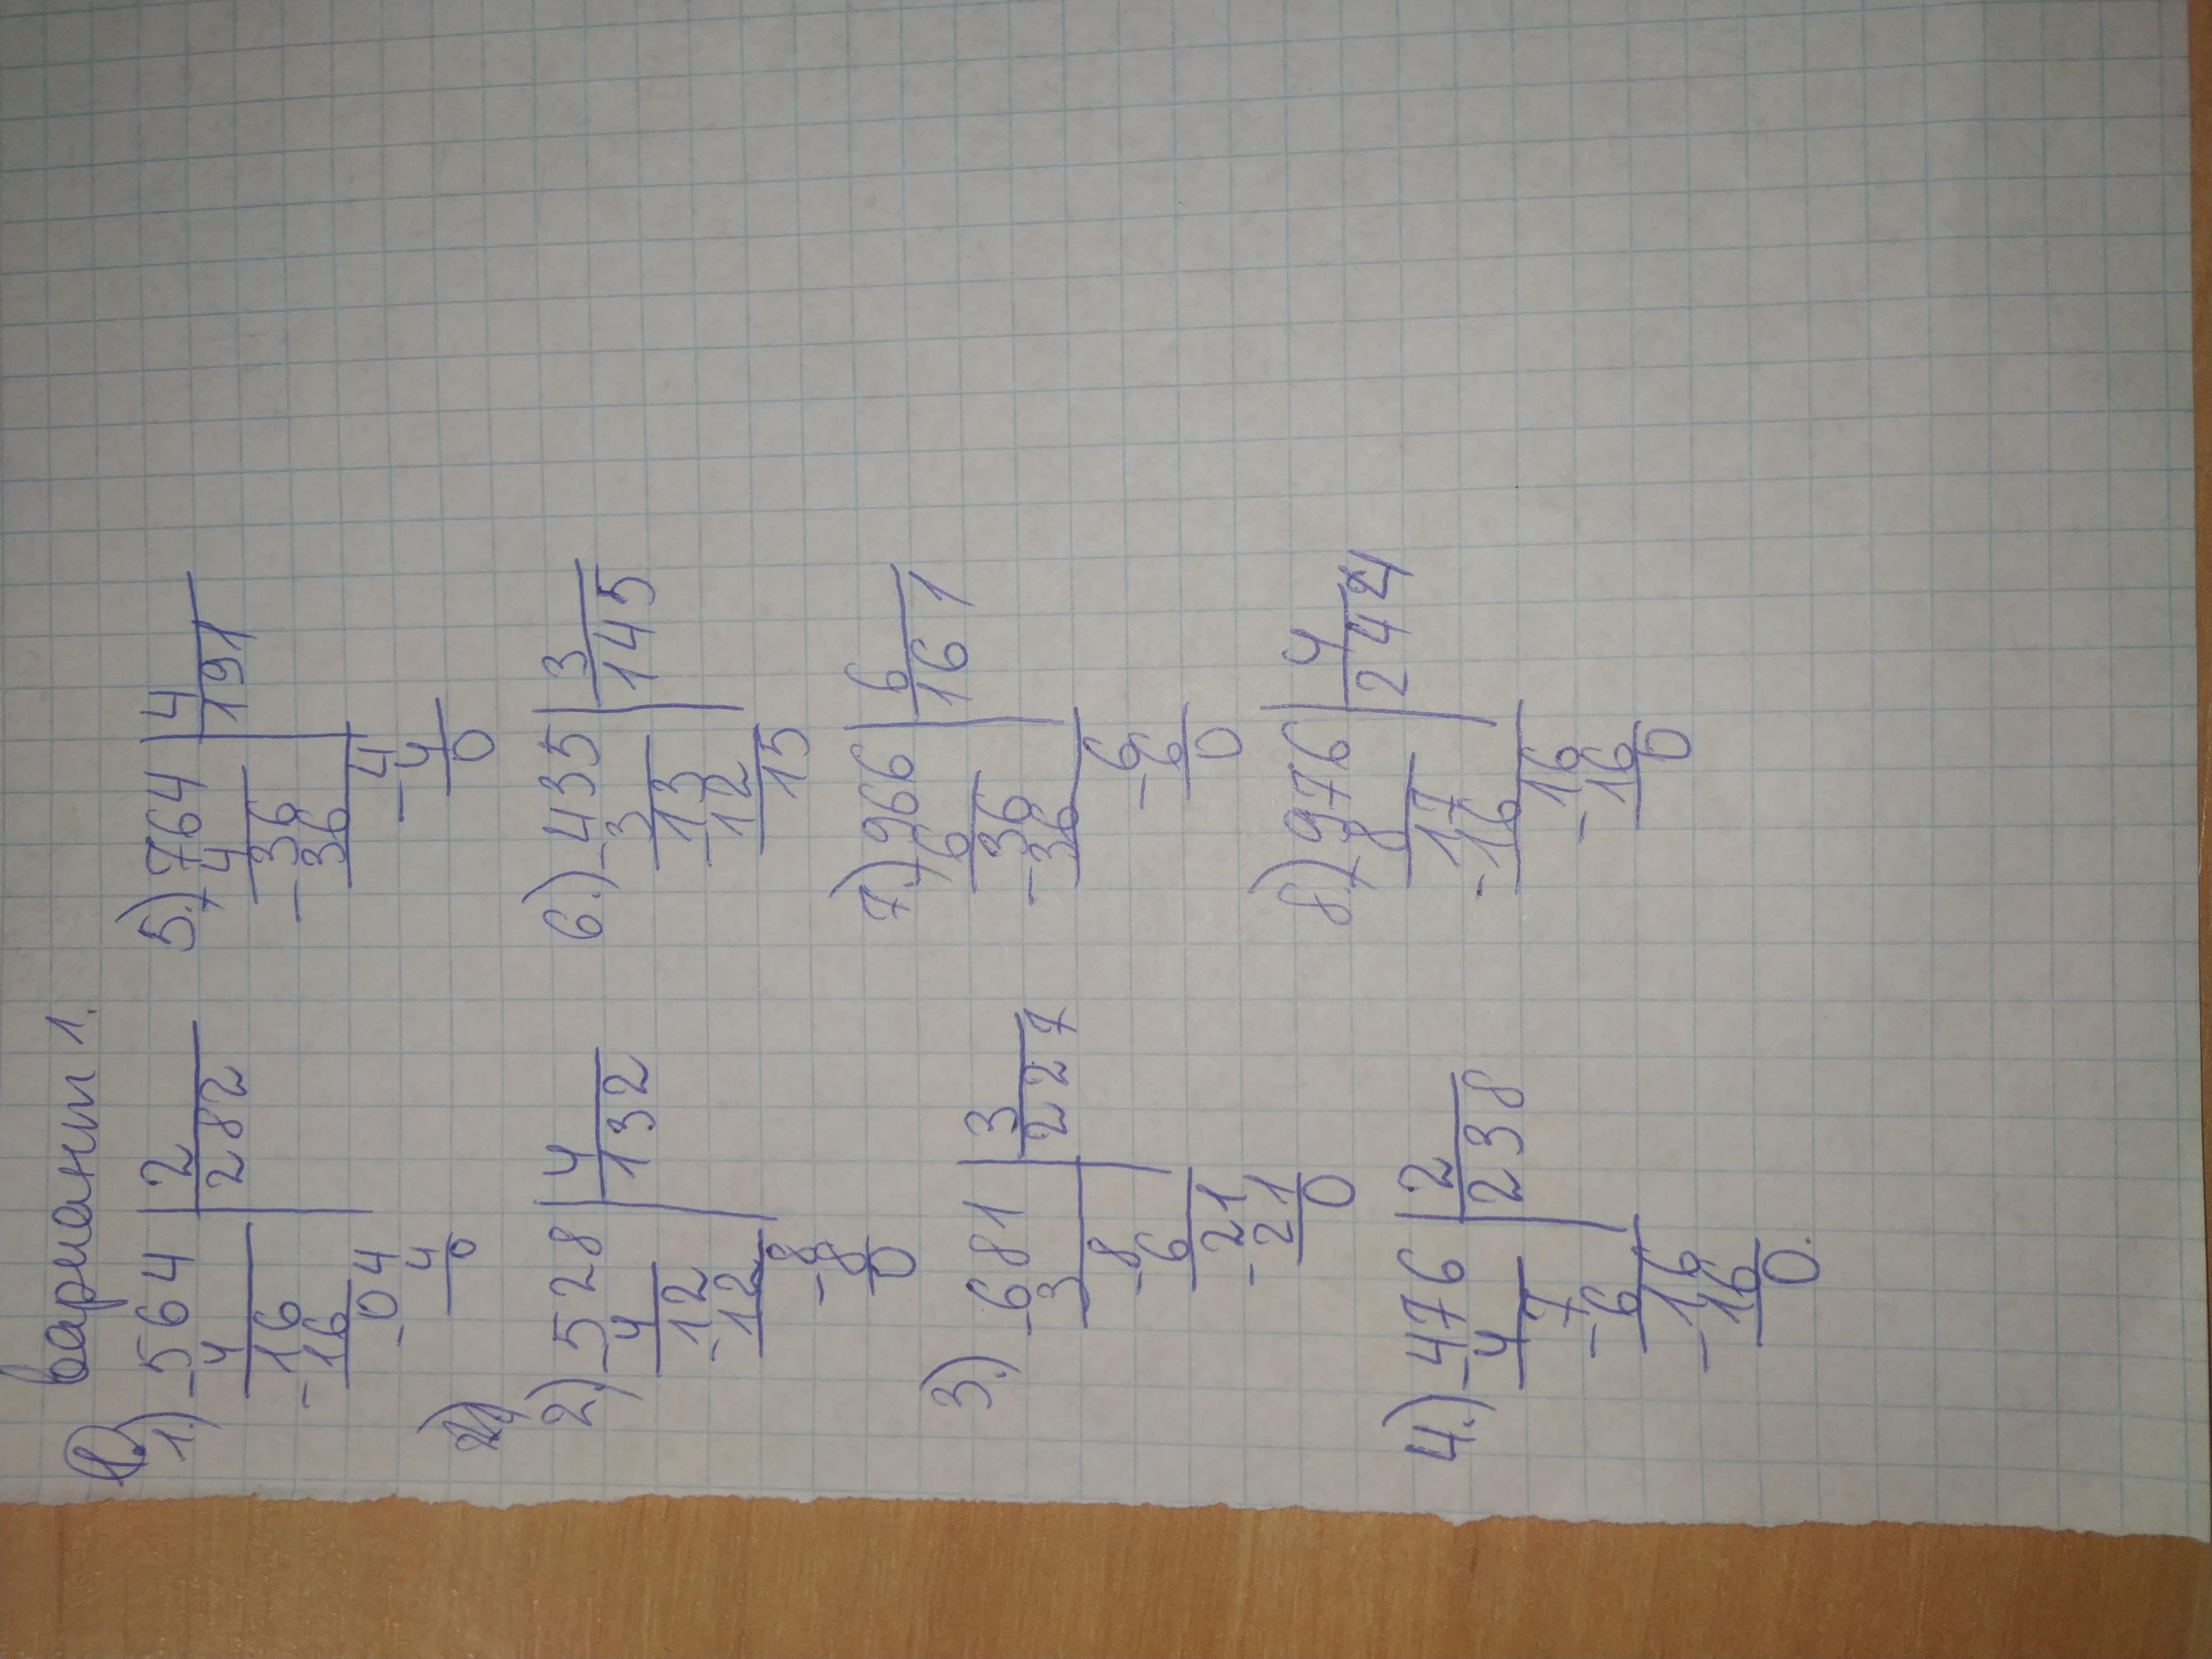 вариант 1.
1.
1.) -564 | 2
4 | 282
-16
16
-04
4
0
2.) -528 | 4
4 | 132
-12
12
-8
8
0
3.) -681 | 3
3 | 227
-8
6
-21
21
0
4.) -476 | 2
4 | 238
-7
6
-16
16
0.
5.) -764 | 4
4 | 191
-36
36
-4
4
0
6.) -435 | 3
3 | 145
-13
12
15
7.) -966 | 6
6 | 161
-36
36
-6
6
0
8.) -976 | 4
8 | 244
-17
16
-16
16
0